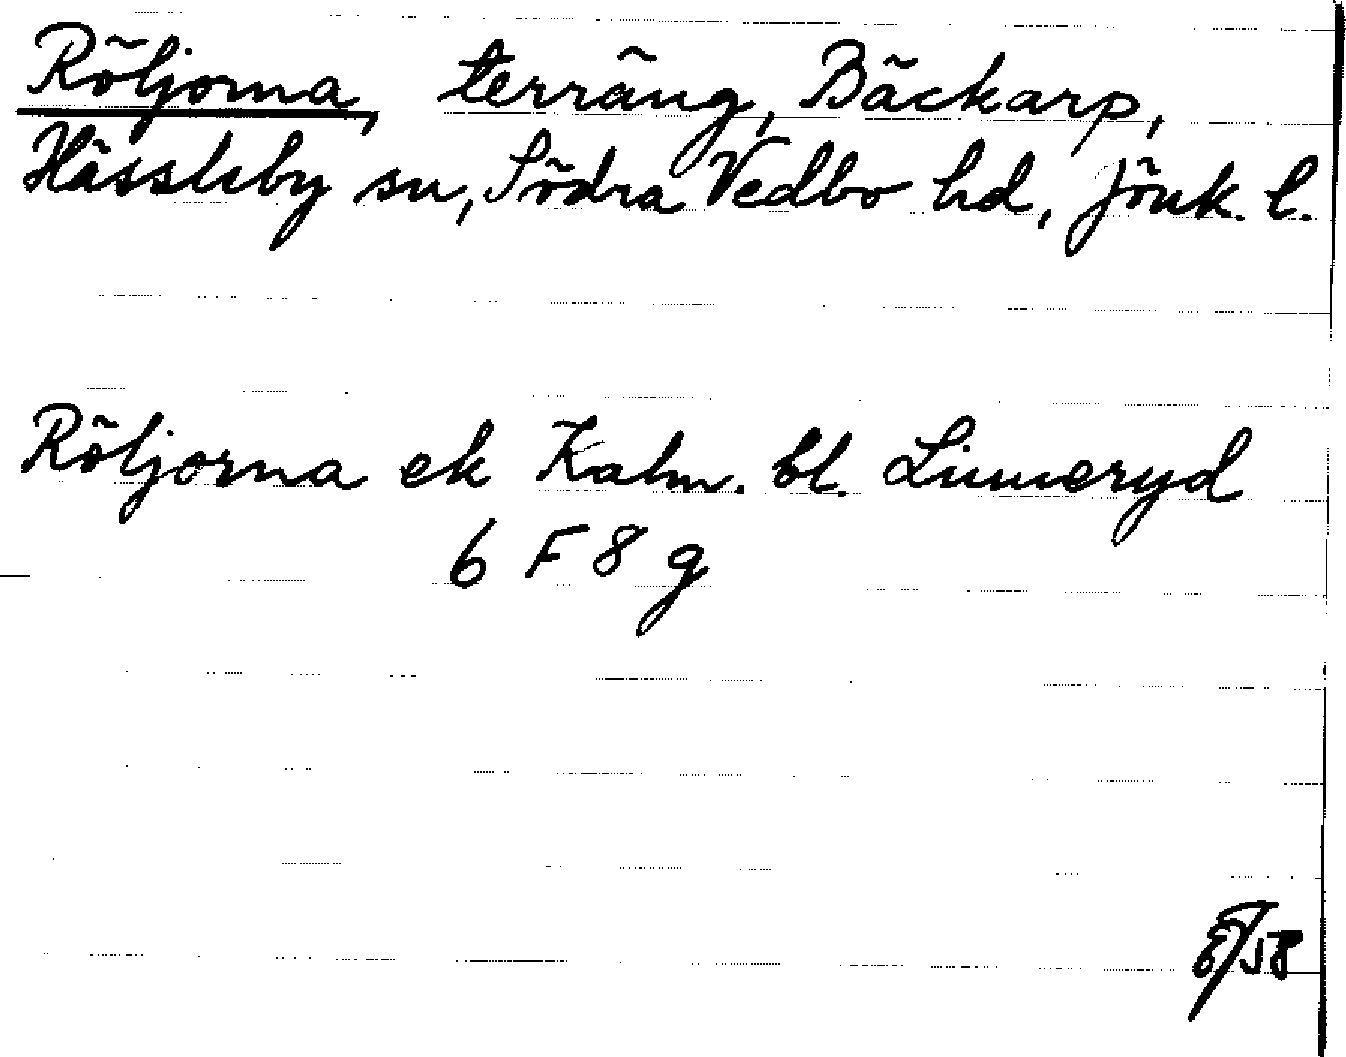 Röljorna, terräng, Bäckarp,
Hässleby sn, Södra Vedbo hd, Jönk. l.
Röljorna ek Kalm. bl. Limmeryd
6 F 8 g